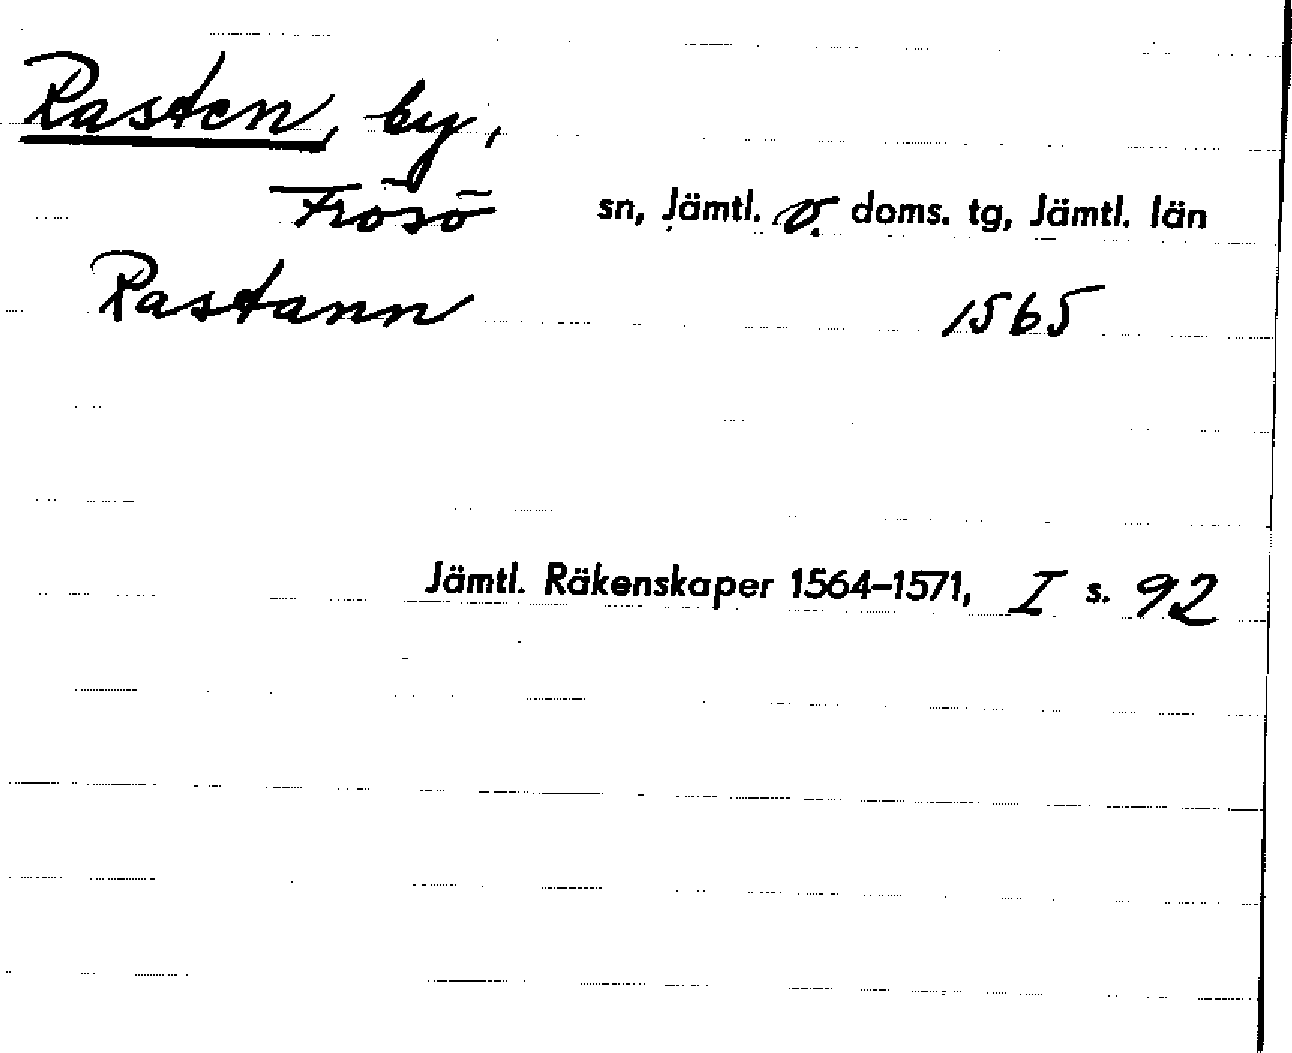 Rasten, by,
Frösö sn, Jämtl. v. doms. tg, Jämtl. län
Rastann 1565
Jämtl. Räkenskaper 1564–1571, I s. 92